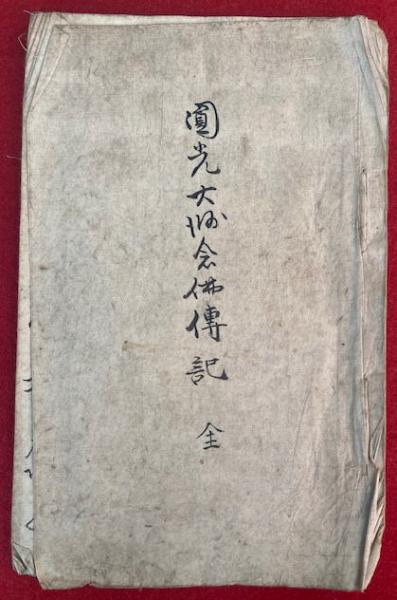 圓光大師念佛傳記 全